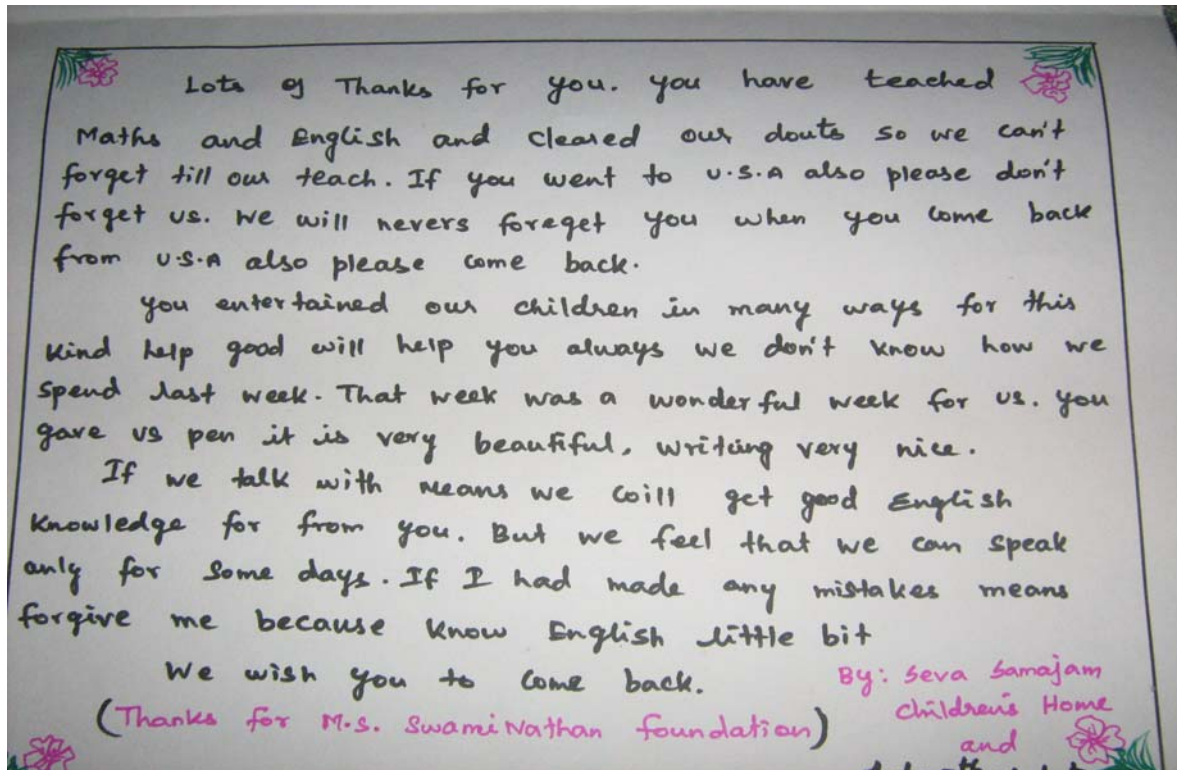 Lots of Thanks for you. you have teached
Maths and English and cleared our douts so we can't
forget till our teach. If you went to U.S.A also please don't
forget us. We will nevers foreget you when you come back
from U.S.A also please come back.
you entertained our children in many ways for this
kind help good will help you always we don't know how we
spend last week. That week was a wonderful week for us. you
gave us pen it is very beautiful, writing very nice.
If we talk with means we will get good English
knowledge for from you. But we feel that we can speak
only for some days. If I had made any mistakes means
forgive me because know English little bit
We wish you to come back.
By: Seva Samajam
Children's Home
(Thanks for M.S. SwamiNathan foundation)
and